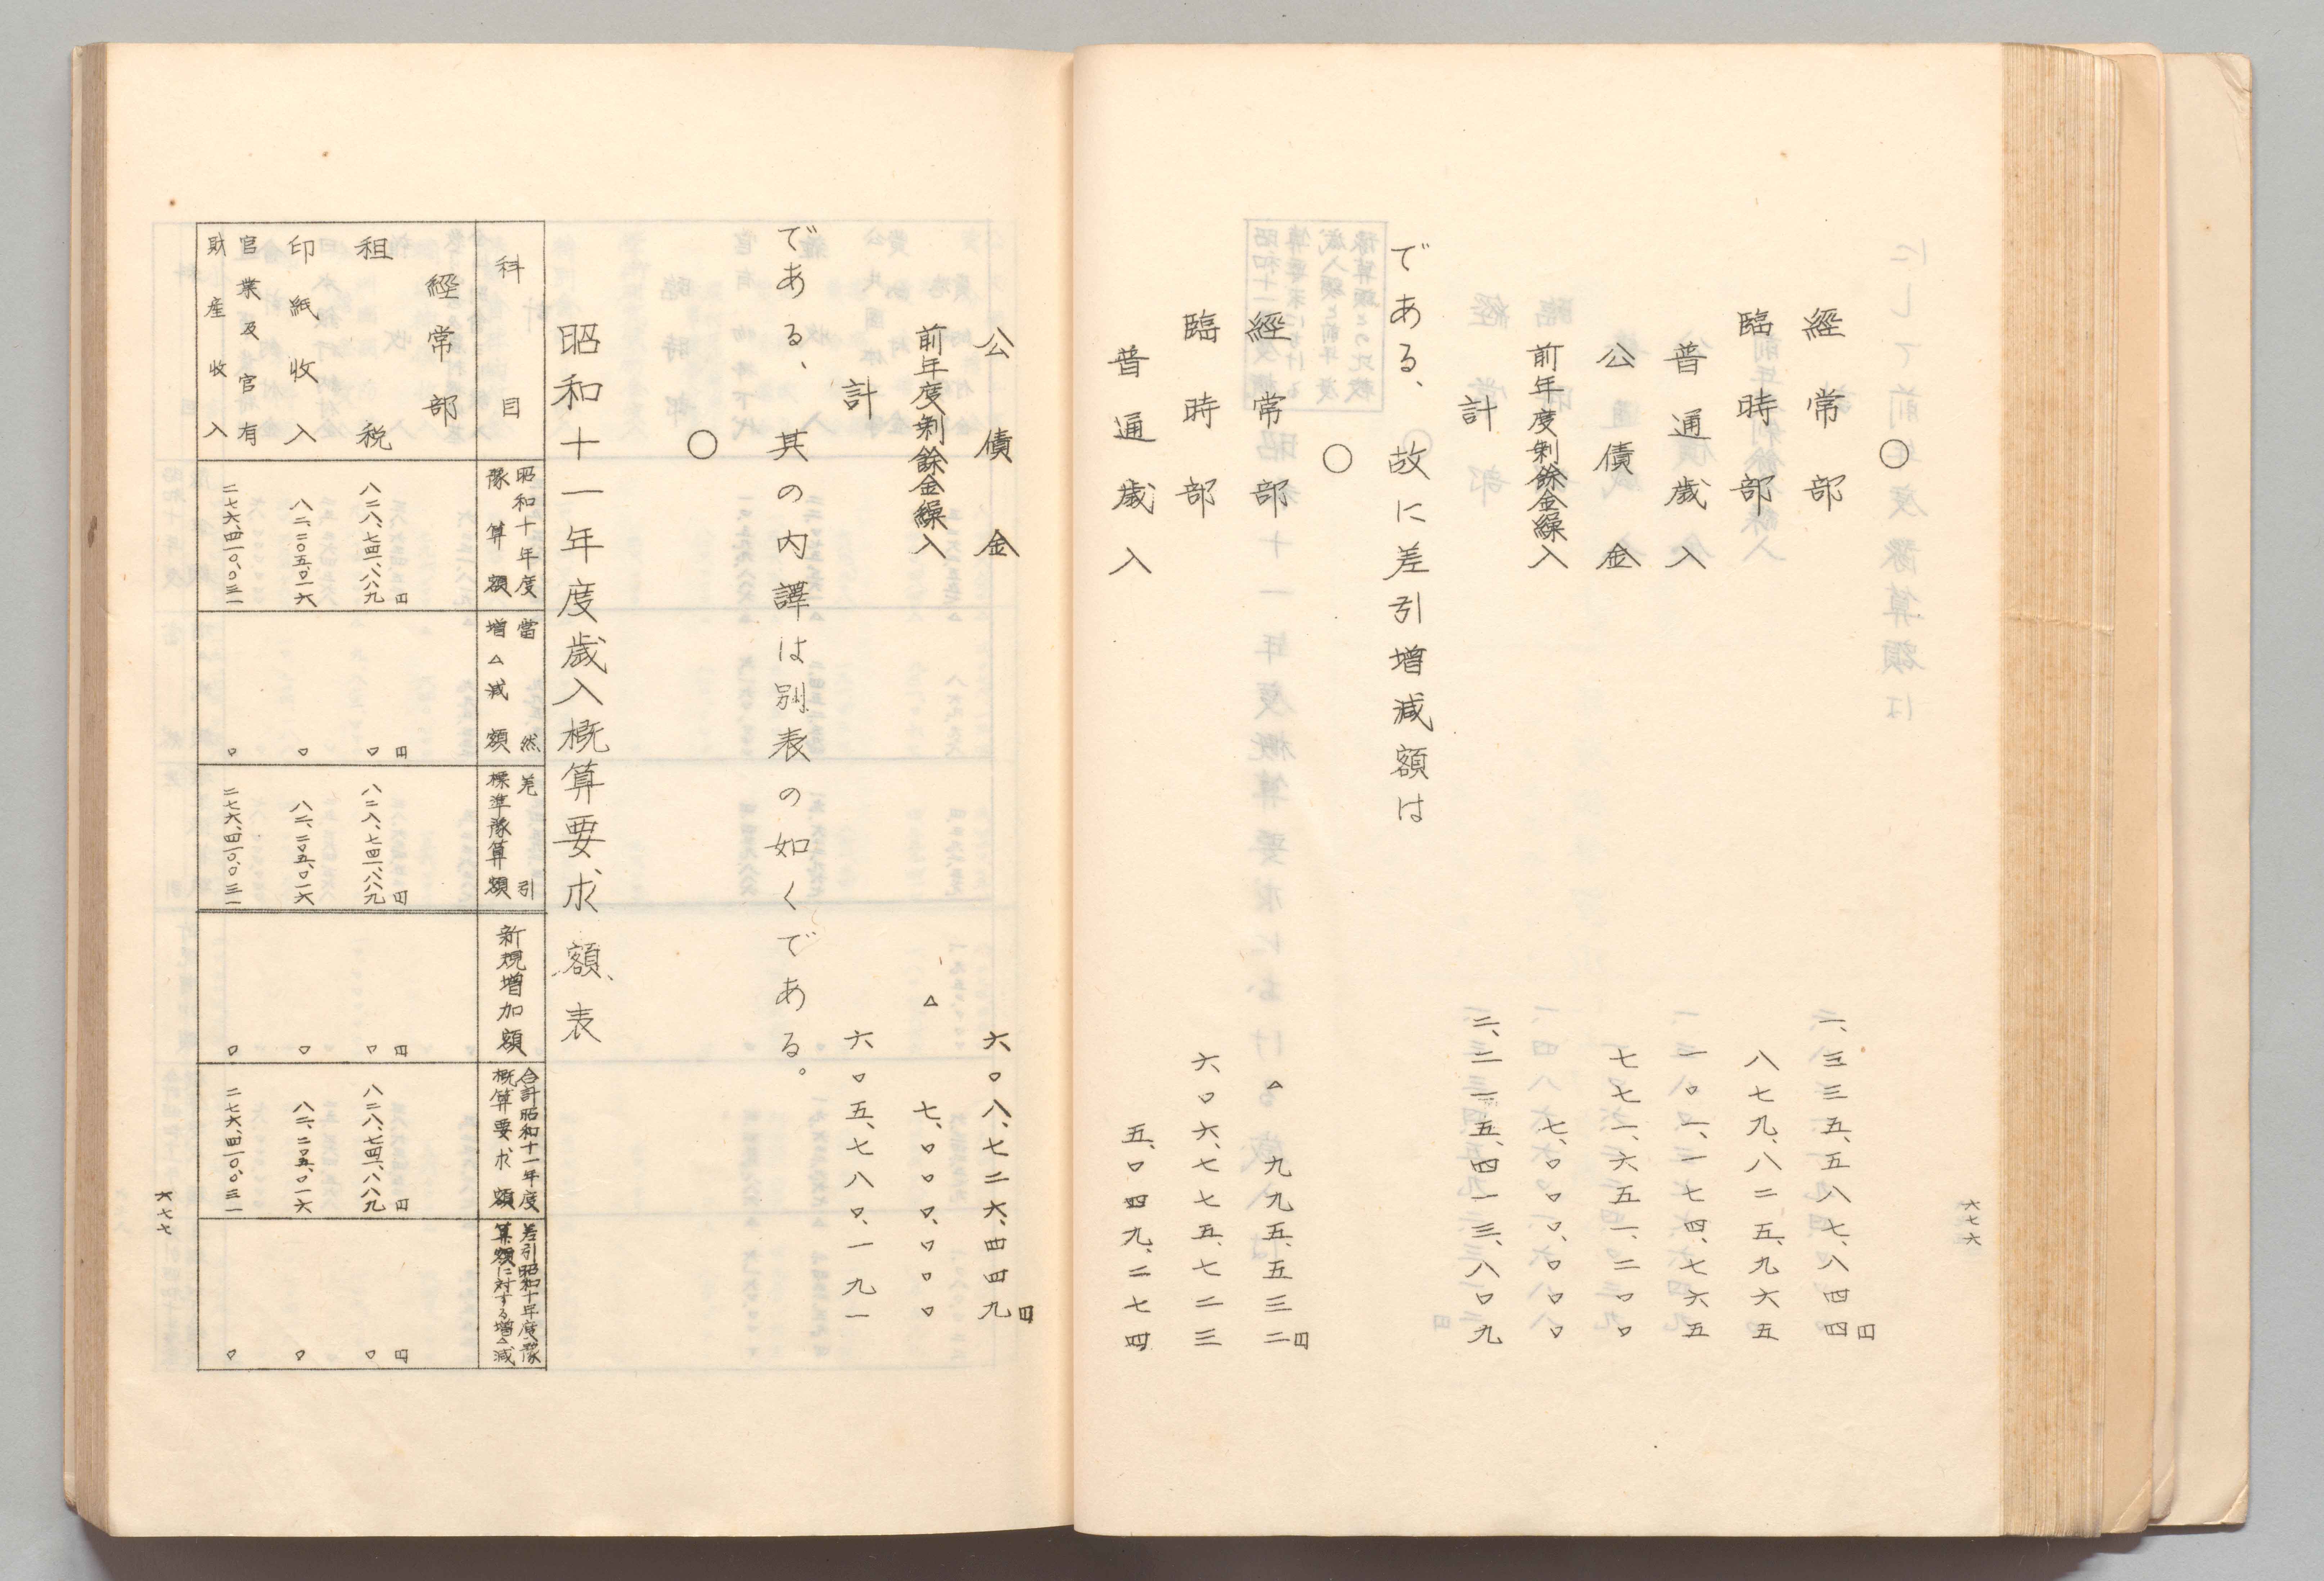 六七六
○
經常部 一、三三五、五八七、八四四円
臨時部 八七九、八二五、九六五
普通歳入 一〇一、一七四、七六五
公債金 七七一、六五一、二〇〇
前年度剰餘金繰入 七、〇〇〇、〇〇〇
計 二、二一五、四一三、八〇九
である、故に差引増減額は
○
經常部 △九九五、五三二円
臨時部 六〇六、七七五、七二三
普通歳入 五、〇四九、二七四
公債金 六〇八、七二六、四四九円
前年度剰餘金繰入 △七、〇〇〇、〇〇〇
計 六〇五、七八〇、一九一
である、其の内譯は別表の如くである。
○
昭和十一年度歳入概算要求額表
科目
昭和十年度
豫算額
當然
増△減額
差引
標準豫算額
新規増加額
合計昭和十一年度
概算要求額
差引昭和十年度豫
算額に対する増△減
經常部
租税 八二八、七四一、八八九円 〇円 八二八、七四一、八八九円 〇円 八二八、七四一、八八九円 〇円
印紙收入 八二、二〇五、〇一六 〇 八二、二〇五、〇一六 〇 八二、二〇五、〇一六 〇
官業及官有
財産收入 二七六、四一〇、〇三一 〇 二七六、四一〇、〇三一 〇 二七六、四一〇、〇三一 〇
六七七